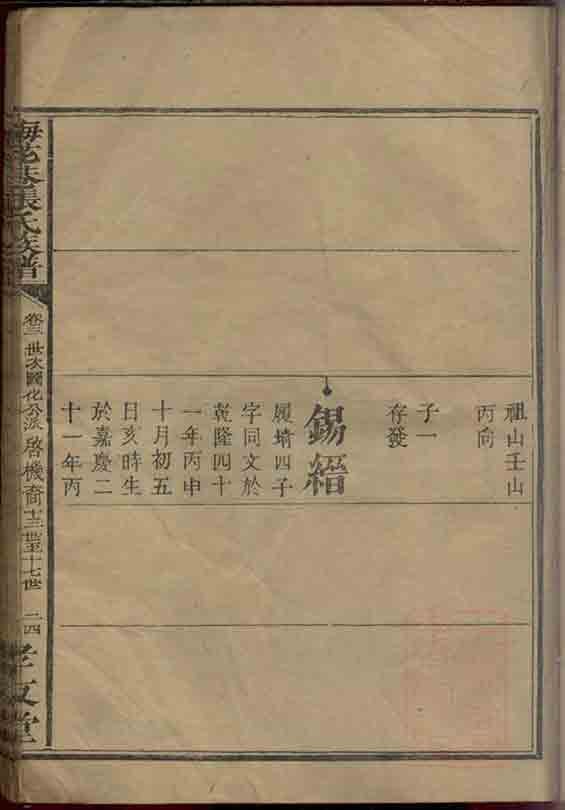 祖山壬山
丙向
子一
存發
錫縉
履堉四子
字同文於
乾隆四十
一年丙申
十月初五
日亥時生
於嘉慶二
十一年丙
張氏族譜
卷三 世次圖化公派 啓機裔 十三世至十七世 二四
孝友堂